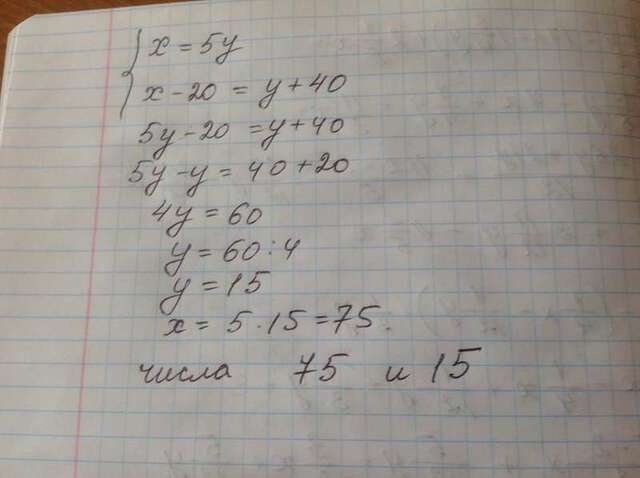 { x = 5y
x - 20 = y + 40
5y - 20 = y + 40
5y - y = 40 + 20
4y = 60
y = 60 : 4
y = 15
x = 5 · 15 = 75.
числа 75 и 15